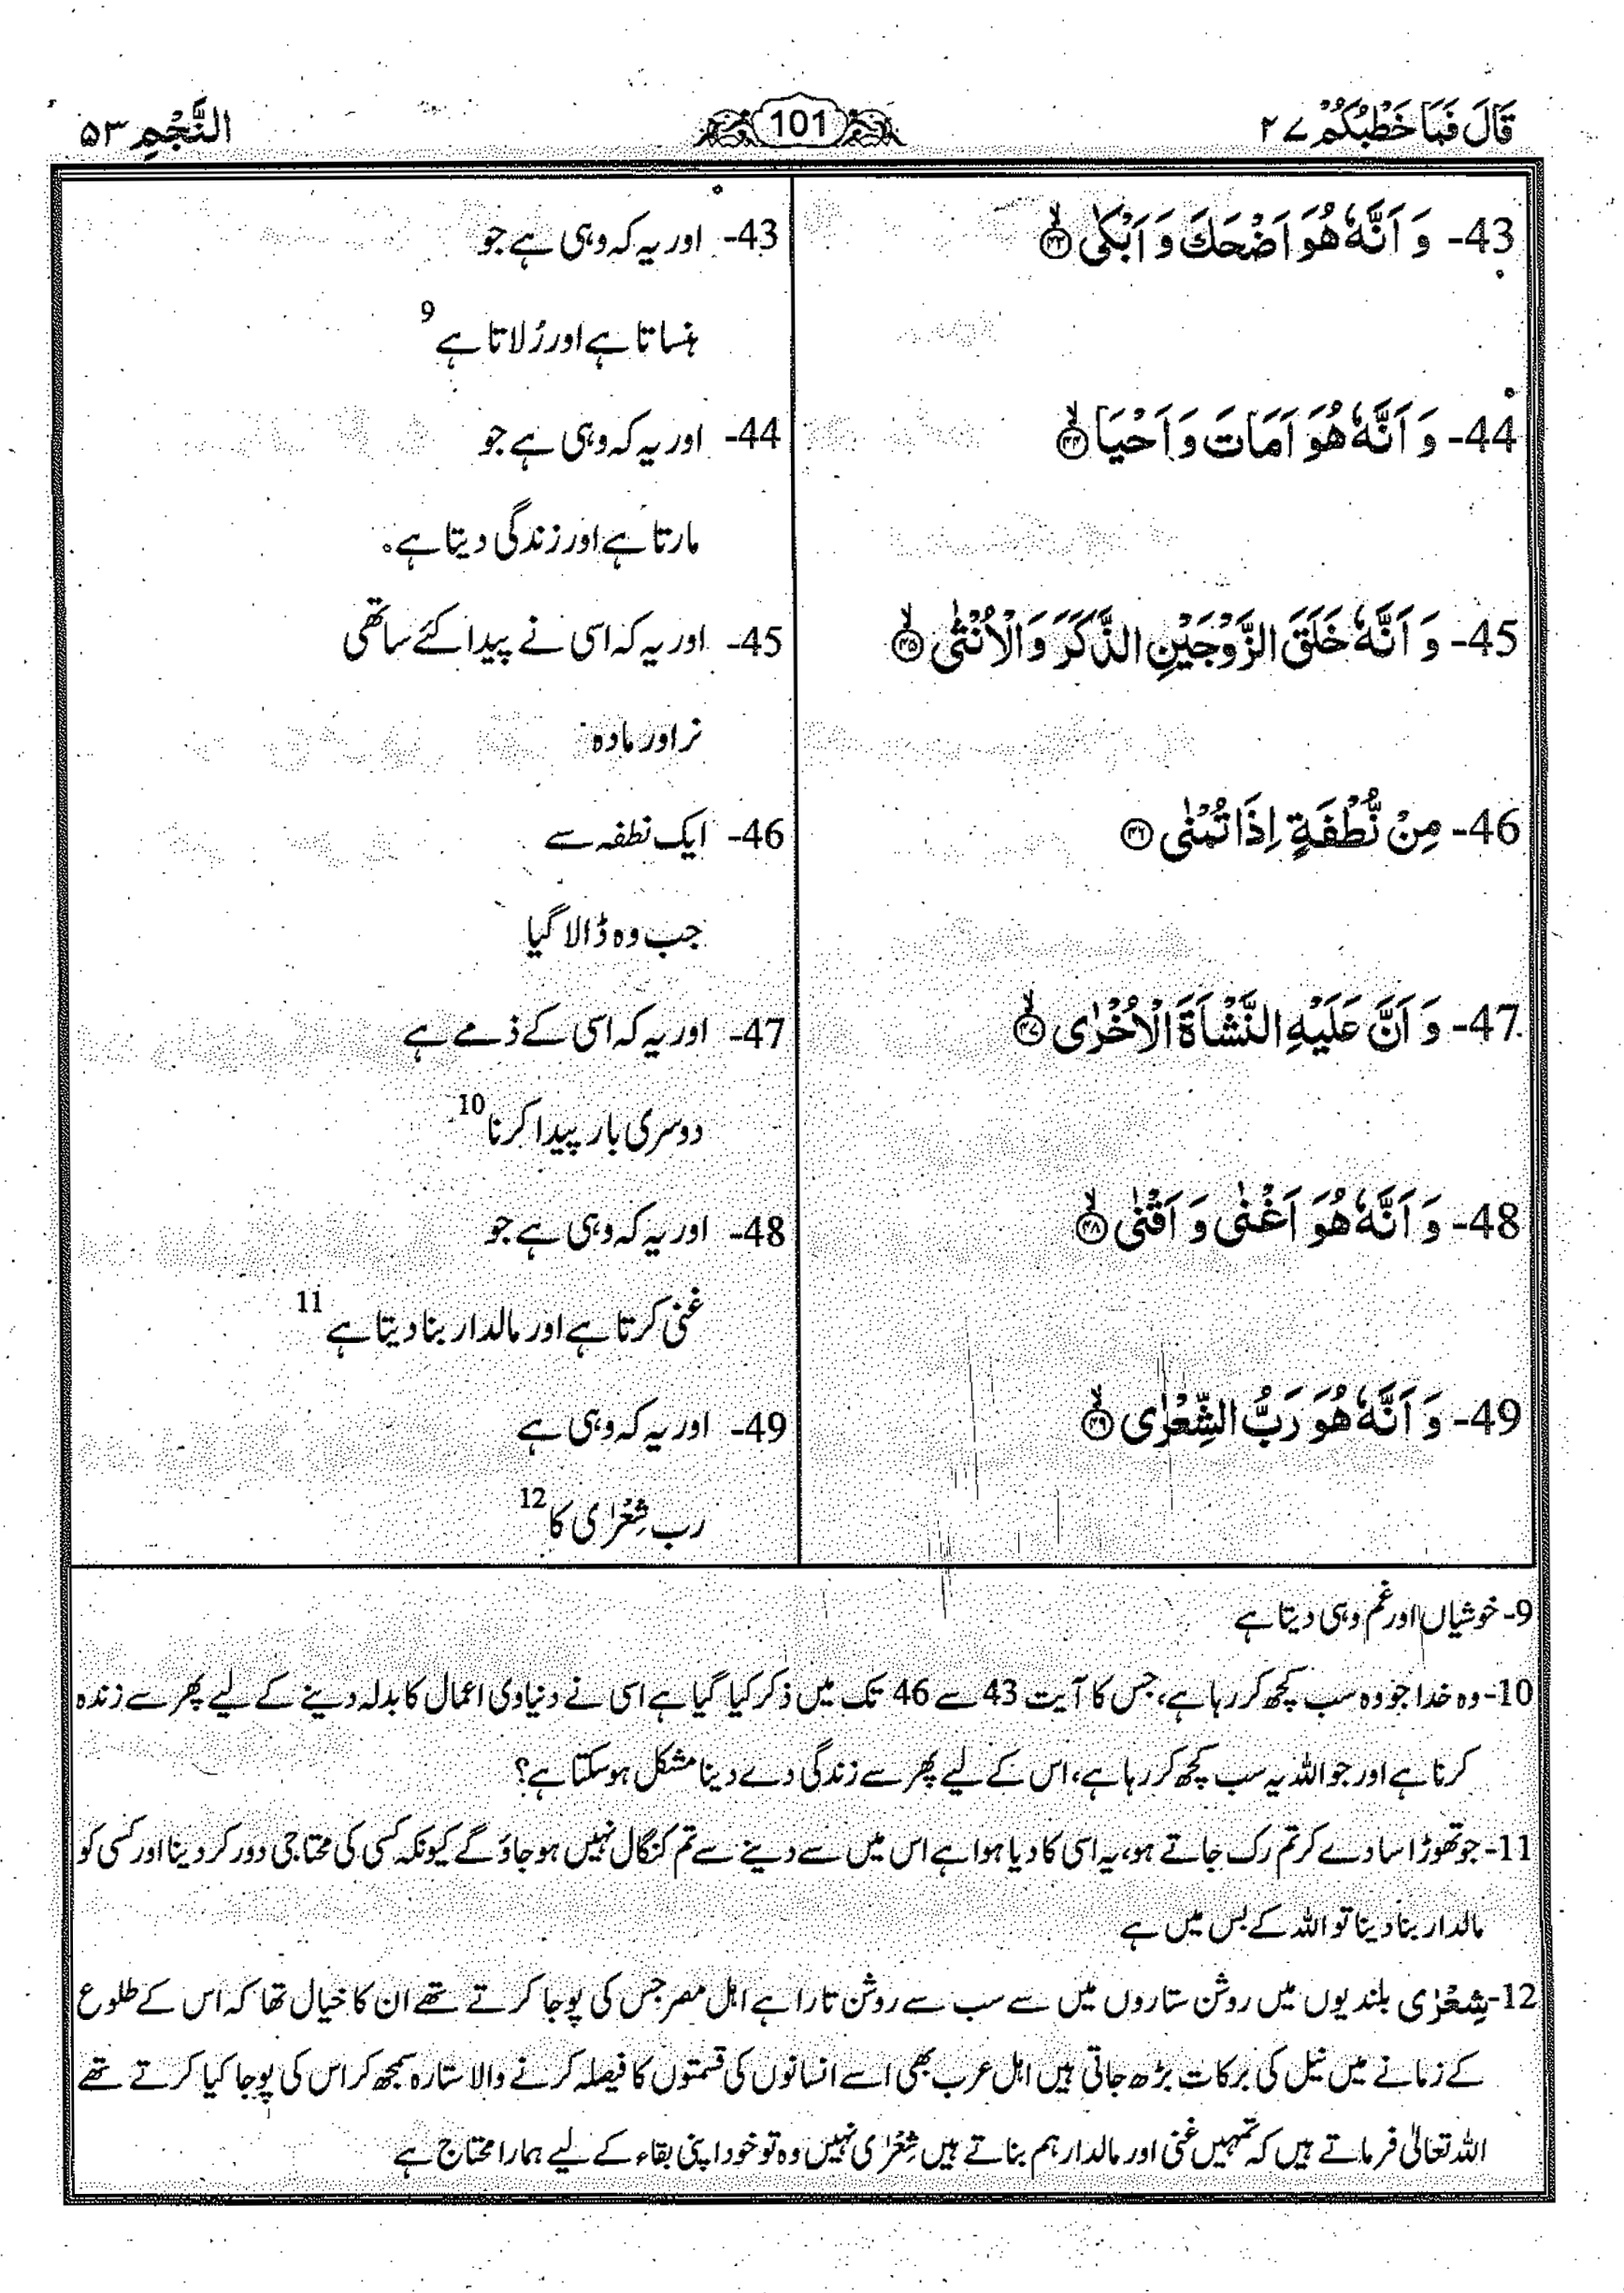 قَالَ فَمَا خَطْبُكُمْ ۲۷
101
النَّجْمِ ۵۳
43- وَ اَنَّهٗ هُوَ اَضْحَكَ وَ اَبْكٰى ۙ۴۳
43- اور یہ کہ وہی ہے جو
ہنساتا ہے اور رُلاتا ہے 9
44- وَ اَنَّهٗ هُوَ اَمَاتَ وَ اَحْيَا ۙ۴۴
44- اور یہ کہ وہی ہے جو
مارتا ہے اور زندگی دیتا ہے۔
45- وَ اَنَّهٗ خَلَقَ الزَّوْجَيْنِ الذَّكَرَ وَ الْاُنْثٰى ۙ۴۵
45- اور یہ کہ اسی نے پیدا کئے ساتھی
نر اور مادہ
46- مِنْ نُّطْفَةٍ اِذَا تُمْنٰى ۴۶
46- ایک نطفہ سے
جب وہ ڈالا گیا
47- وَ اَنَّ عَلَيْهِ النَّشْاَةَ الْاُخْرٰى ۙ۴۷
47- اور یہ کہ اسی کے ذمے ہے
دوسری بار پیدا کرنا 10
48- وَ اَنَّهٗ هُوَ اَغْنٰى وَ اَقْنٰى ۙ۴۸
48- اور یہ کہ وہی ہے جو
غنی کرتا ہے اور مالدار بنا دیتا ہے 11
49- وَ اَنَّهٗ هُوَ رَبُّ الشِّعْرٰى ۙ۴۹
49- اور یہ کہ وہی ہے
رب شِعْرٰی کا 12
9- خوشیاں اور غم وہی دیتا ہے
10- وہ خدا جو وہ سب کچھ کر رہا ہے، جس کا آیت 43 سے 46 تک میں ذکر کیا گیا ہے اسی نے دنیاوی اعمال کا بدلہ دینے کے لیے پھر سے زندہ
کرنا ہے اور جو اللہ یہ سب کچھ کر رہا ہے، اس کے لیے پھر سے زندگی دے دینا مشکل ہو سکتا ہے؟
11- جو تھوڑا سا دے کر تم رک جاتے ہو، یہ اسی کا دیا ہوا ہے اس میں سے دینے سے تم کنگال نہیں ہو جاؤ گے کیونکہ کسی کی محتاجی دور کر دینا اور کسی کو
مالدار بنا دینا تو اللہ کے بس میں ہے
12- شِعْرٰی بلندیوں میں روشن ستاروں میں سے سب سے روشن تارا ہے اہل مصر جس کی پوجا کرتے تھے ان کا خیال تھا کہ اس کے طلوع
کے زمانے میں نیل کی برکات بڑھ جاتی ہیں اہل عرب بھی اسے انسانوں کی قسمتوں کا فیصلہ کرنے والا ستارہ سمجھ کر اس کی پوجا کیا کرتے تھے
اللہ تعالیٰ فرماتے ہیں کہ تمہیں غنی اور مالدار ہم بناتے ہیں شِعْرٰی نہیں وہ تو خود اپنی بقاء کے لیے ہمارا محتاج ہے